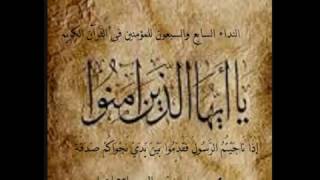 النداء السابع والسبعون للمؤمنين في القرآن الكريم
يا أيها الذين آمنوا
إذا ناجيتم الرسول فقدموا بين يدي نجواكم صدقة